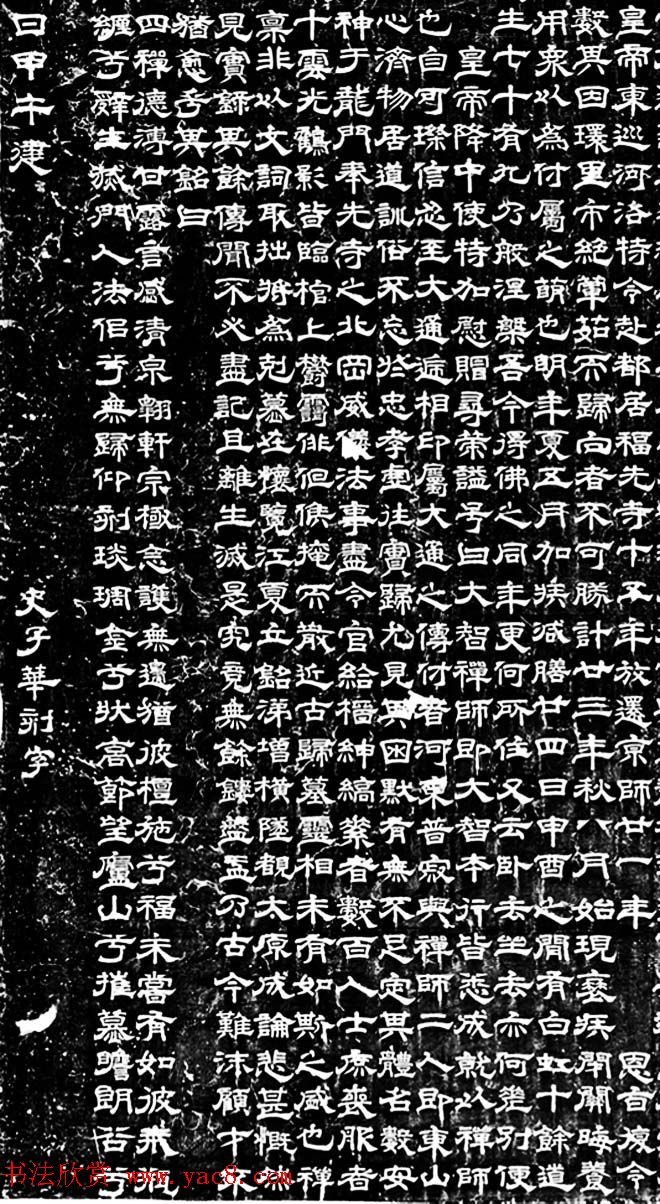 皇帝東巡河洛特令赴都居福先寺十五年放還京師廿一年 恩旨復令
數其因環里市絶葷茹而歸向者不可勝計廿三年秋八月始現衰疾閉關晦養
用衆以為付屬之萌也明年夏五月加疾減膳廿四日申酉之間有白虹十餘道
生七十有九乃般涅槃吾今得佛之同年更何所住又云卧去坐去亦何差別便
皇帝降中使特加慰贈尋策謚号曰大智禪師即大智本行皆悉成就以禪師
也自可璨信忍至大通遞相印屬大通之傳付者河東普寂與禪師二人即東山
心濟物居道訓俗不忘於忠孝虚往實歸尤見其困默有無不足定其體名數安
神于龍門奉先寺之北岡威儀法事盡令官給搢紳縞素者數百人士庶喪服者
十雲光鶴影皆臨棺上欝靄俳佪候掩而散近古歸墓靈相未有如斯之盛也禪
稟非以文詞取拙將為剋慕在懷覽江夏立銘涕增橫墜覩太原成論悲甚慨
見實録其餘傳聞不必盡記且離生滅是究竟無餘鏤盤盂乃古今難沫顧才不
猶愈乎其銘曰
四禪德溥甘露言感清泉翱軒宗極念護無邊猶彼檀施兮福未嘗有如彼飛
纏兮辭生滅門人法侶兮無歸仰刻琰琱金兮狀高節望廬山兮摧慕瞻朗谷兮
日甲午建 史子華刻字
书法欣赏 www.yac8.com